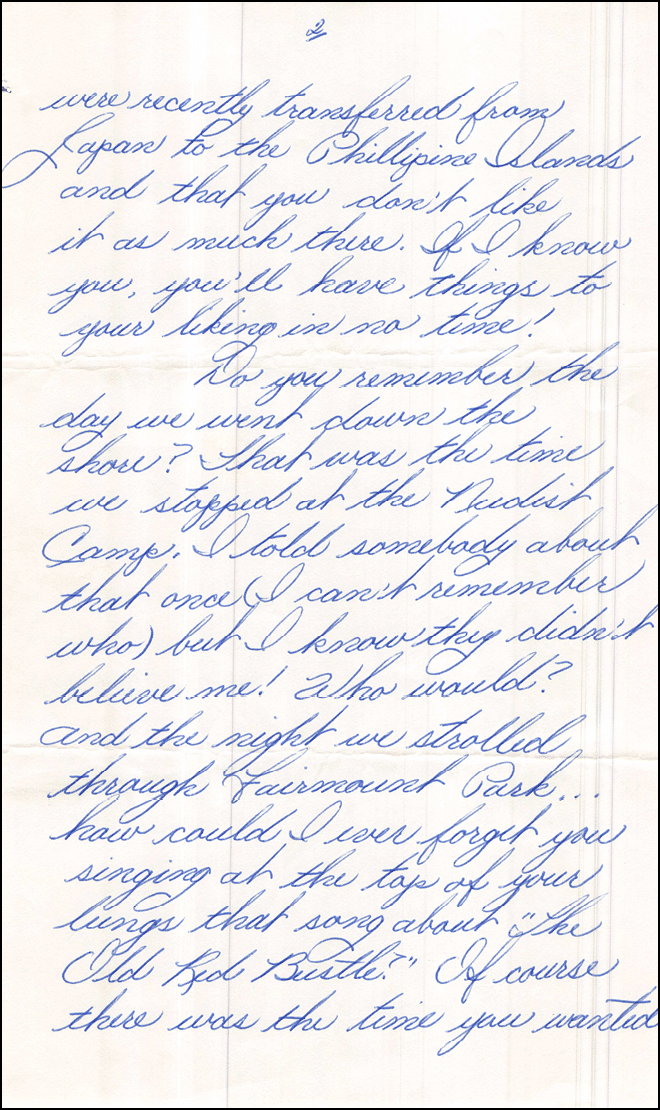 2
were recently transferred from
Japan to the Phillipine Islands
and that you don't like
it as much there. If I know
you, you'll have things to
your liking in no time!
Do you remember the
day we went down the
shore? That was the time
we stopped at the Nudist
Camp. I told somebody about
that once (I can't remember
who) but I know they didn't
believe me! Who would?
And the night we strolled
through Fairmount Park...
how could I ever forget you
singing at the top of your
lungs that song about "The
Old Red Bustle?" Of course
there was the time you wanted